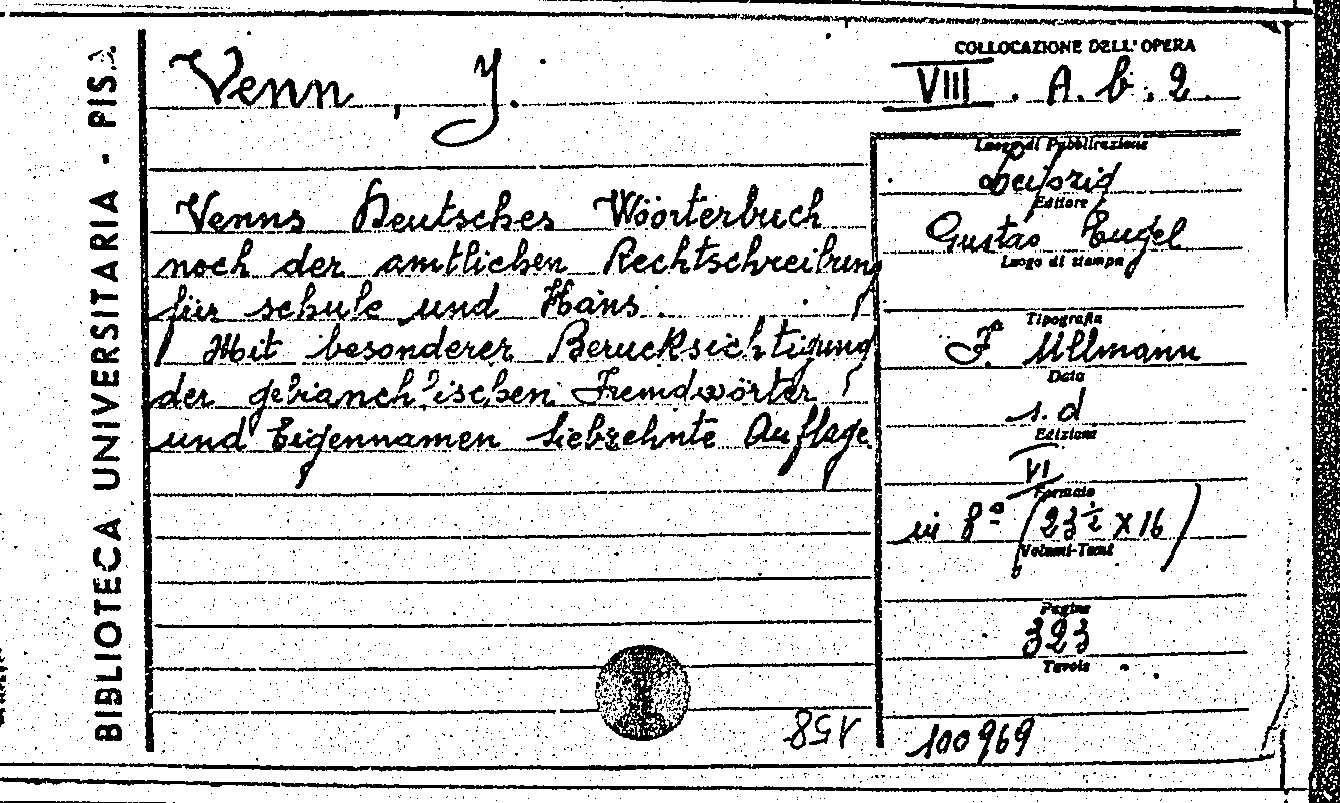 BIBLIOTECA UNIVERSITARIA - PISA
Venn, J.
COLLOCAZIONE DELL'OPERA
VIII. A. b. 2.
Venns Deutsches Wöorterbuch
noch der amtlichen Rechtschreibung
für schule und Haus.
Mit besonderer Berucksichtigung
der Fremdwörter
und Eigennamen Siebzehnte Auflage
Luogo di Pubblicazione
Leipzig
Editore
Gustao Eugel
Luogo di stampa
Tipografia
F. Ullmann
Data
s. d
Edizione
VI
Formato
in 8º (23½ x 16)
Volumi-Tomi
Pagine
323
Tavole
158
100969